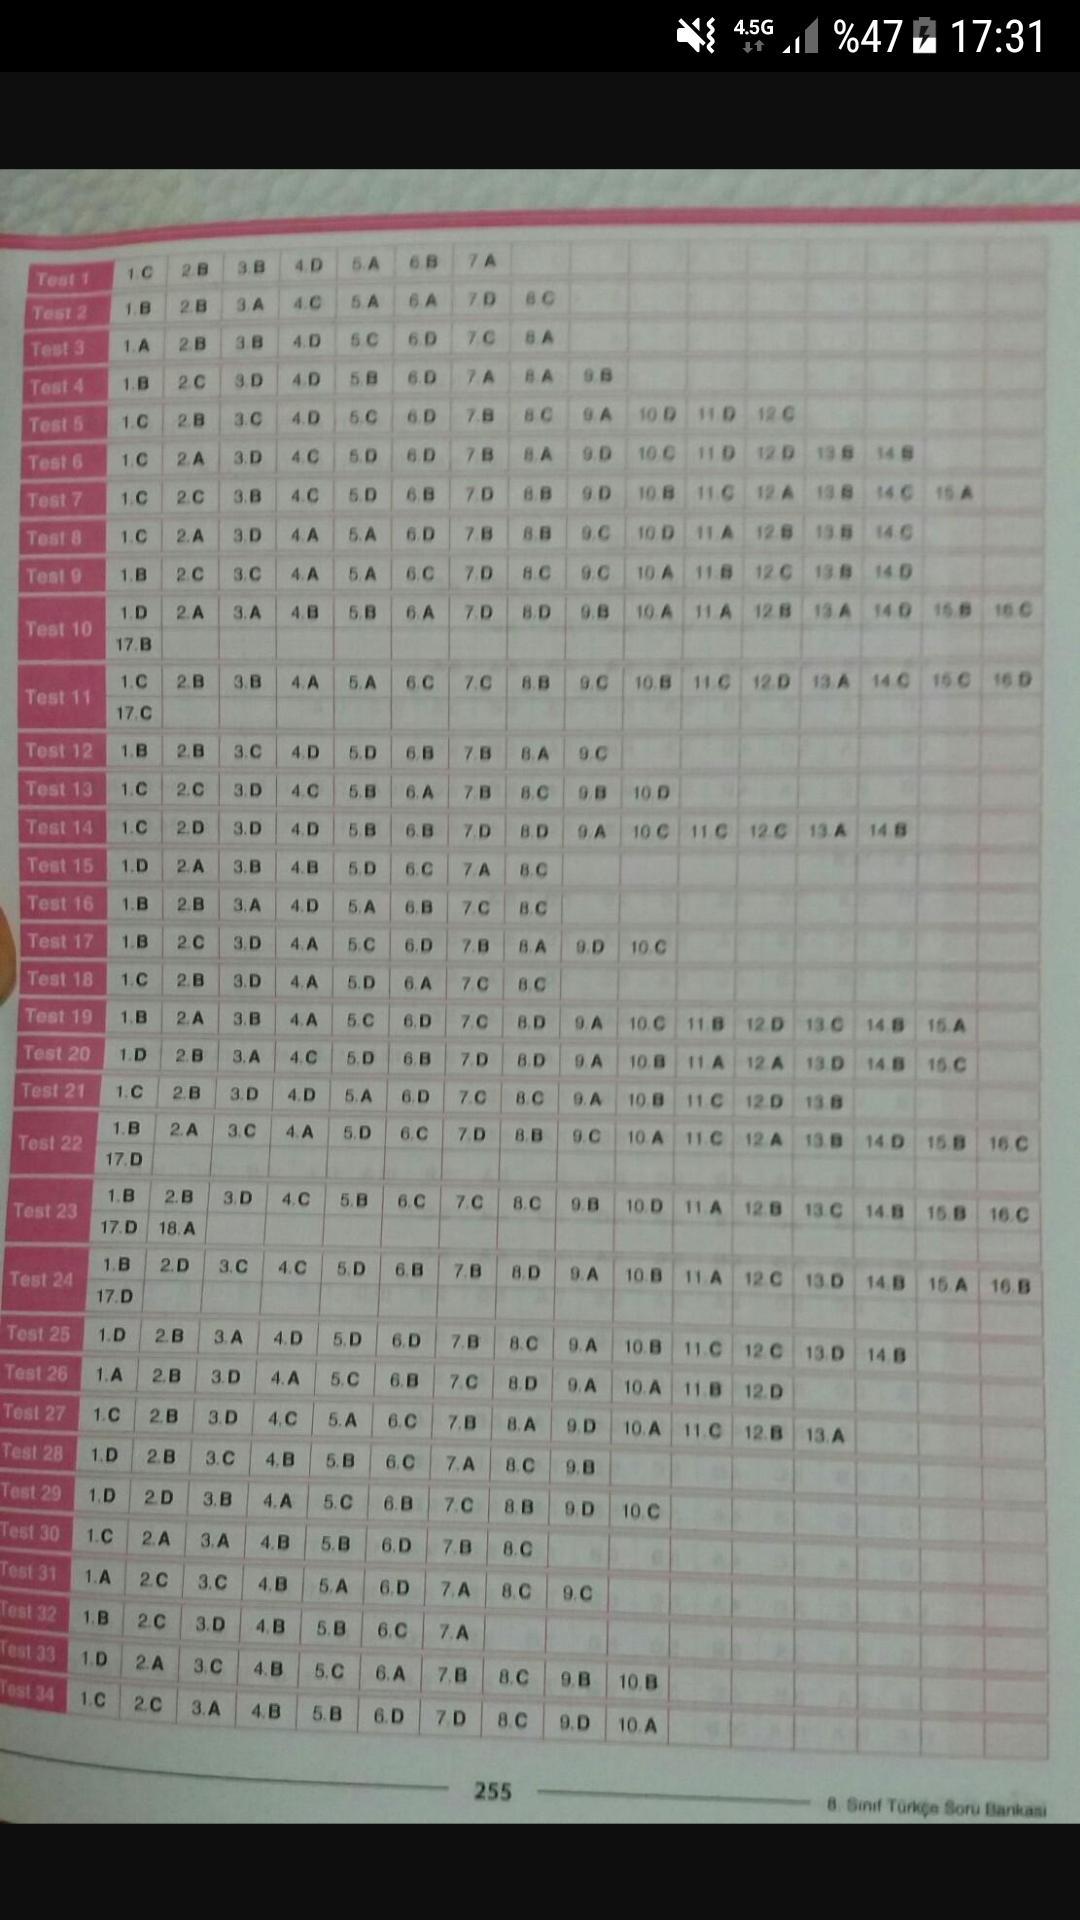 4.5G %47 17:31
Test 1 1.C 2.B 3.B 4.D 5.A 6.B 7.A
Test 2 1.B 2.B 3.A 4.C 5.A 6.A 7.D 8.C
Test 3 1.A 2.B 3.B 4.D 5.C 6.D 7.C 8.A
Test 4 1.B 2.C 3.D 4.D 5.B 6.D 7.A 8.A 9.B
Test 5 1.C 2.B 3.C 4.D 5.C 6.D 7.B 8.C 9.A 10.D 11.D 12.C
Test 6 1.C 2.A 3.D 4.C 5.D 6.D 7.B 8.A 9.D 10.C 11.D 12.D 13.B 14.B
Test 7 1.C 2.C 3.B 4.C 5.D 6.B 7.D 8.B 9.D 10.B 11.C 12.A 13.B 14.C 15.A
Test 8 1.C 2.A 3.D 4.A 5.A 6.D 7.B 8.B 9.C 10.D 11.A 12.B 13.B 14.C
Test 9 1.B 2.C 3.C 4.A 5.A 6.C 7.D 8.C 9.C 10.A 11.B 12.C 13.B 14.D
Test 10 1.D 2.A 3.A 4.B 5.B 6.A 7.D 8.D 9.B 10.A 11.A 12.B 13.A 14.D 15.B 16.C
17.B
Test 11 1.C 2.B 3.B 4.A 5.A 6.C 7.C 8.B 9.C 10.B 11.C 12.D 13.A 14.C 15.C 16.D
17.C
Test 12 1.B 2.B 3.C 4.D 5.D 6.B 7.B 8.A 9.C
Test 13 1.C 2.C 3.D 4.C 5.B 6.A 7.B 8.C 9.B 10.D
Test 14 1.C 2.D 3.D 4.D 5.B 6.B 7.D 8.D 9.A 10.C 11.C 12.C 13.A 14.B
Test 15 1.D 2.A 3.B 4.B 5.D 6.C 7.A 8.C
Test 16 1.B 2.B 3.A 4.D 5.A 6.B 7.C 8.C
Test 17 1.B 2.C 3.D 4.A 5.C 6.D 7.B 8.A 9.D 10.C
Test 18 1.C 2.B 3.D 4.A 5.D 6.A 7.C 8.C
Test 19 1.B 2.A 3.B 4.A 5.C 6.D 7.C 8.D 9.A 10.C 11.B 12.D 13.C 14.B 15.A
Test 20 1.D 2.B 3.A 4.C 5.D 6.B 7.D 8.D 9.A 10.B 11.A 12.A 13.D 14.B 15.C
Test 21 1.C 2.B 3.D 4.D 5.A 6.D 7.C 8.C 9.A 10.B 11.C 12.D 13.B
Test 22 1.B 2.A 3.C 4.A 5.D 6.C 7.D 8.B 9.C 10.A 11.C 12.A 13.B 14.D 15.B 16.C
17.D
Test 23 1.B 2.B 3.D 4.C 5.B 6.C 7.C 8.C 9.B 10.D 11.A 12.B 13.C 14.B 15.B 16.C
17.D 18.A
Test 24 1.B 2.D 3.C 4.C 5.D 6.B 7.B 8.D 9.A 10.B 11.A 12.C 13.D 14.B 15.A 16.B
17.D
Test 25 1.D 2.B 3.A 4.D 5.D 6.D 7.B 8.C 9.A 10.B 11.C 12.C 13.D 14.B
Test 26 1.A 2.B 3.D 4.A 5.C 6.B 7.C 8.D 9.A 10.A 11.B 12.D
Test 27 1.C 2.B 3.D 4.C 5.A 6.C 7.B 8.A 9.D 10.A 11.C 12.B 13.A
Test 28 1.D 2.B 3.C 4.B 5.B 6.C 7.A 8.C 9.B
Test 29 1.D 2.D 3.B 4.A 5.C 6.B 7.C 8.B 9.D 10.C
Test 30 1.C 2.A 3.A 4.B 5.B 6.D 7.B 8.C
Test 31 1.A 2.C 3.C 4.B 5.A 6.D 7.A 8.C 9.C
Test 32 1.B 2.C 3.D 4.B 5.B 6.C 7.A
Test 33 1.D 2.A 3.C 4.B 5.C 6.A 7.B 8.C 9.B 10.B
Test 34 1.C 2.C 3.A 4.B 5.B 6.D 7.D 8.C 9.D 10.A
255
8. Sınıf Türkçe Soru Bankası